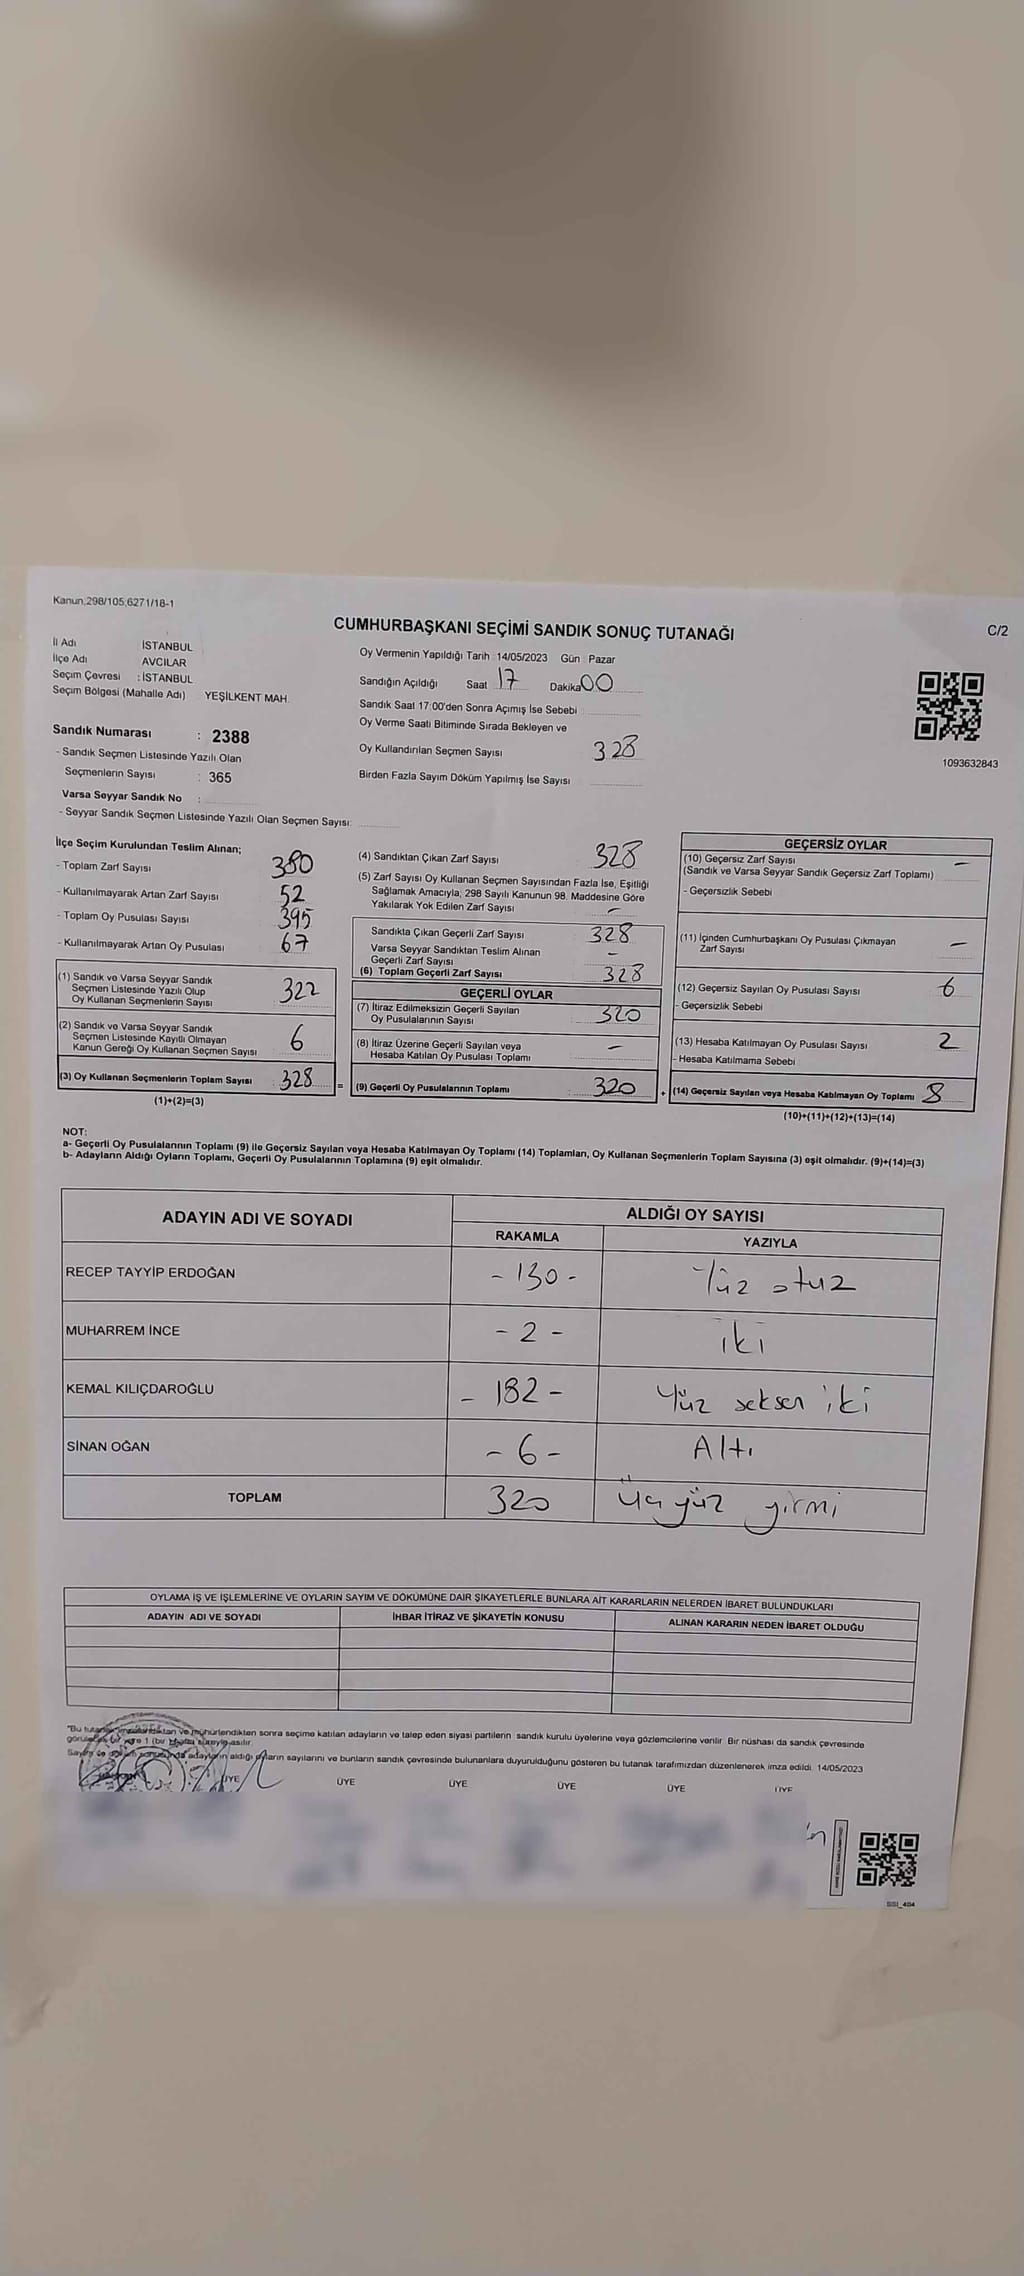 Kanun;298/105;6271/18-1
CUMHURBAŞKANI SEÇİMİ SANDIK SONUÇ TUTANAĞI
C/2
İl Adı İSTANBUL
İlçe Adı AVCILAR
Seçim Çevresi : İSTANBUL
Seçim Bölgesi (Mahalle Adı) YEŞİLKENT MAH.
Oy Vermenin Yapıldığı Tarih 14/05/2023 Gün Pazar
Sandığın Açıldığı Saat 17 Dakika 00
Sandık Saat 17:00'den Sonra Açımış İse Sebebi
Oy Verme Saati Bitiminde Sırada Bekleyen ve
Oy Kullandırılan Seçmen Sayısı 328
Birden Fazla Sayım Döküm Yapılmış İse Sayısı
1093632843
Sandık Numarası : 2388
- Sandık Seçmen Listesinde Yazılı Olan
Seçmenlerin Sayısı : 365
Varsa Seyyar Sandık No :
- Seyyar Sandık Seçmen Listesinde Yazılı Olan Seçmen Sayısı:
İlçe Seçim Kurulundan Teslim Alınan;
- Toplam Zarf Sayısı 380
- Kullanılmayarak Artan Zarf Sayısı 52
- Toplam Oy Pusulası Sayısı 395
- Kullanılmayarak Artan Oy Pusulası 67
(1) Sandık ve Varsa Seyyar Sandık
Seçmen Listesinde Yazılı Olup
Oy Kullanan Seçmenlerin Sayısı 322
(2) Sandık ve Varsa Seyyar Sandık
Seçmen Listesinde Kayıtlı Olmayan
Kanun Gereği Oy Kullanan Seçmen Sayısı 6
(3) Oy Kullanan Seçmenlerin Toplam Sayısı 328 =
(1)+(2)=(3)
(4) Sandıktan Çıkan Zarf Sayısı 328
(5) Zarf Sayısı Oy Kullanan Seçmen Sayısından Fazla İse, Eşitliği
Sağlamak Amacıyla; 298 Sayılı Kanunun 98. Maddesine Göre
Yakılarak Yok Edilen Zarf Sayısı -
Sandıkta Çıkan Geçerli Zarf Sayısı 328
Varsa Seyyar Sandıktan Teslim Alınan
Geçerli Zarf Sayısı -
(6) Toplam Geçerli Zarf Sayısı 328
GEÇERLİ OYLAR
(7) İtiraz Edilmeksizin Geçerli Sayılan
Oy Pusulalarının Sayısı 320
(8) İtiraz Üzerine Geçerli Sayılan veya
Hesaba Katılan Oy Pusulası Toplamı -
(9) Geçerli Oy Pusulalarının Toplamı 320 +
GEÇERSİZ OYLAR
(10) Geçersiz Zarf Sayısı -
(Sandık ve Varsa Seyyar Sandık Geçersiz Zarf Toplamı)
- Geçersizlik Sebebi
(11) İçinden Cumhurbaşkanı Oy Pusulası Çıkmayan
Zarf Sayısı -
(12) Geçersiz Sayılan Oy Pusulası Sayısı 6
- Geçersizlik Sebebi
(13) Hesaba Katılmayan Oy Pusulası Sayısı 2
- Hesaba Katılmama Sebebi
(14) Geçersiz Sayılan veya Hesaba Katılmayan Oy Toplamı 8
(10)+(11)+(12)+(13)=(14)
NOT:
a- Geçerli Oy Pusulalarının Toplamı (9) ile Geçersiz Sayılan veya Hesaba Katılmayan Oy Toplamı (14) Toplamları, Oy Kullanan Seçmenlerin Toplam Sayısına (3) eşit olmalıdır. (9)+(14)=(3)
b- Adayların Aldığı Oyların Toplamı, Geçerli Oy Pusulalarının Toplamına (9) eşit olmalıdır.
ADAYIN ADI VE SOYADI ALDIĞI OY SAYISI
RAKAMLA YAZIYLA
RECEP TAYYİP ERDOĞAN - 130 - Yüz otuz
MUHARREM İNCE - 2 - iki
KEMAL KILIÇDAROĞLU - 182 - Yüz seksen iki
SİNAN OĞAN - 6 - Altı
TOPLAM 320 üçyüz yirmi
OYLAMA İŞ VE İŞLEMLERİNE VE OYLARIN SAYIM VE DÖKÜMÜNE DAİR ŞİKAYETLERLE BUNLARA AİT KARARLARIN NELERDEN İBARET BULUNDUKLARI
ADAYIN ADI VE SOYADI İHBAR İTİRAZ VE ŞİKAYETİN KONUSU ALINAN KARARIN NEDEN İBARET OLDUĞU
"Bu tutanak imzalandıktan ve mühürlendikten sonra seçime katılan adayların ve talep eden siyasi partilerin sandık kurulu üyelerine veya gözlemcilerine verilir. Bir nüshası da sandık çevresinde
görülecek bir yere 1 (bir) hafta süreyle asılır.
Sayım ve döküm sonucunda adayların aldığı oyların sayılarını ve bunların sandık çevresinde bulunanlara duyurulduğunu gösteren bu tutanak tarafımızdan düzenlenerek imza edildi. 14/05/2023
ÜYE ÜYE ÜYE ÜYE ÜYE ÜYE
SSI_404